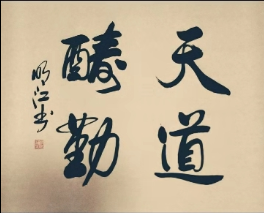 天道
酬勤
明江书